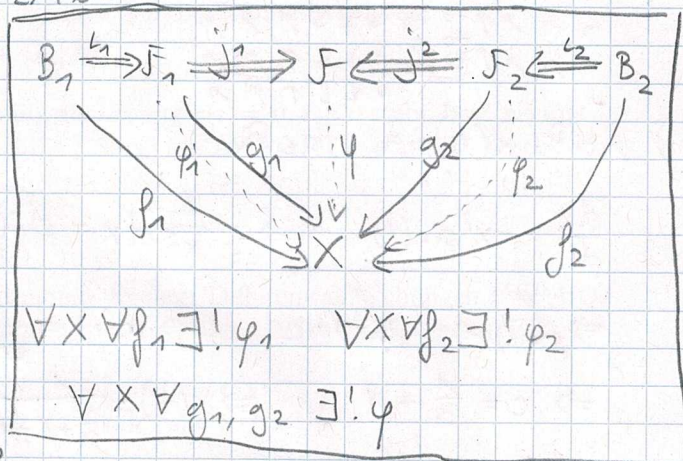 B₁ ι₁ F₁ j¹ F j² F₂ ι₂ B₂
φ₁ g₁ φ g₂ φ₂
f₁ X f₂
∀X ∀f₁ ∃! φ₁ ∀X ∀f₂ ∃! φ₂
∀ X ∀ g₁, g₂ ∃! φ